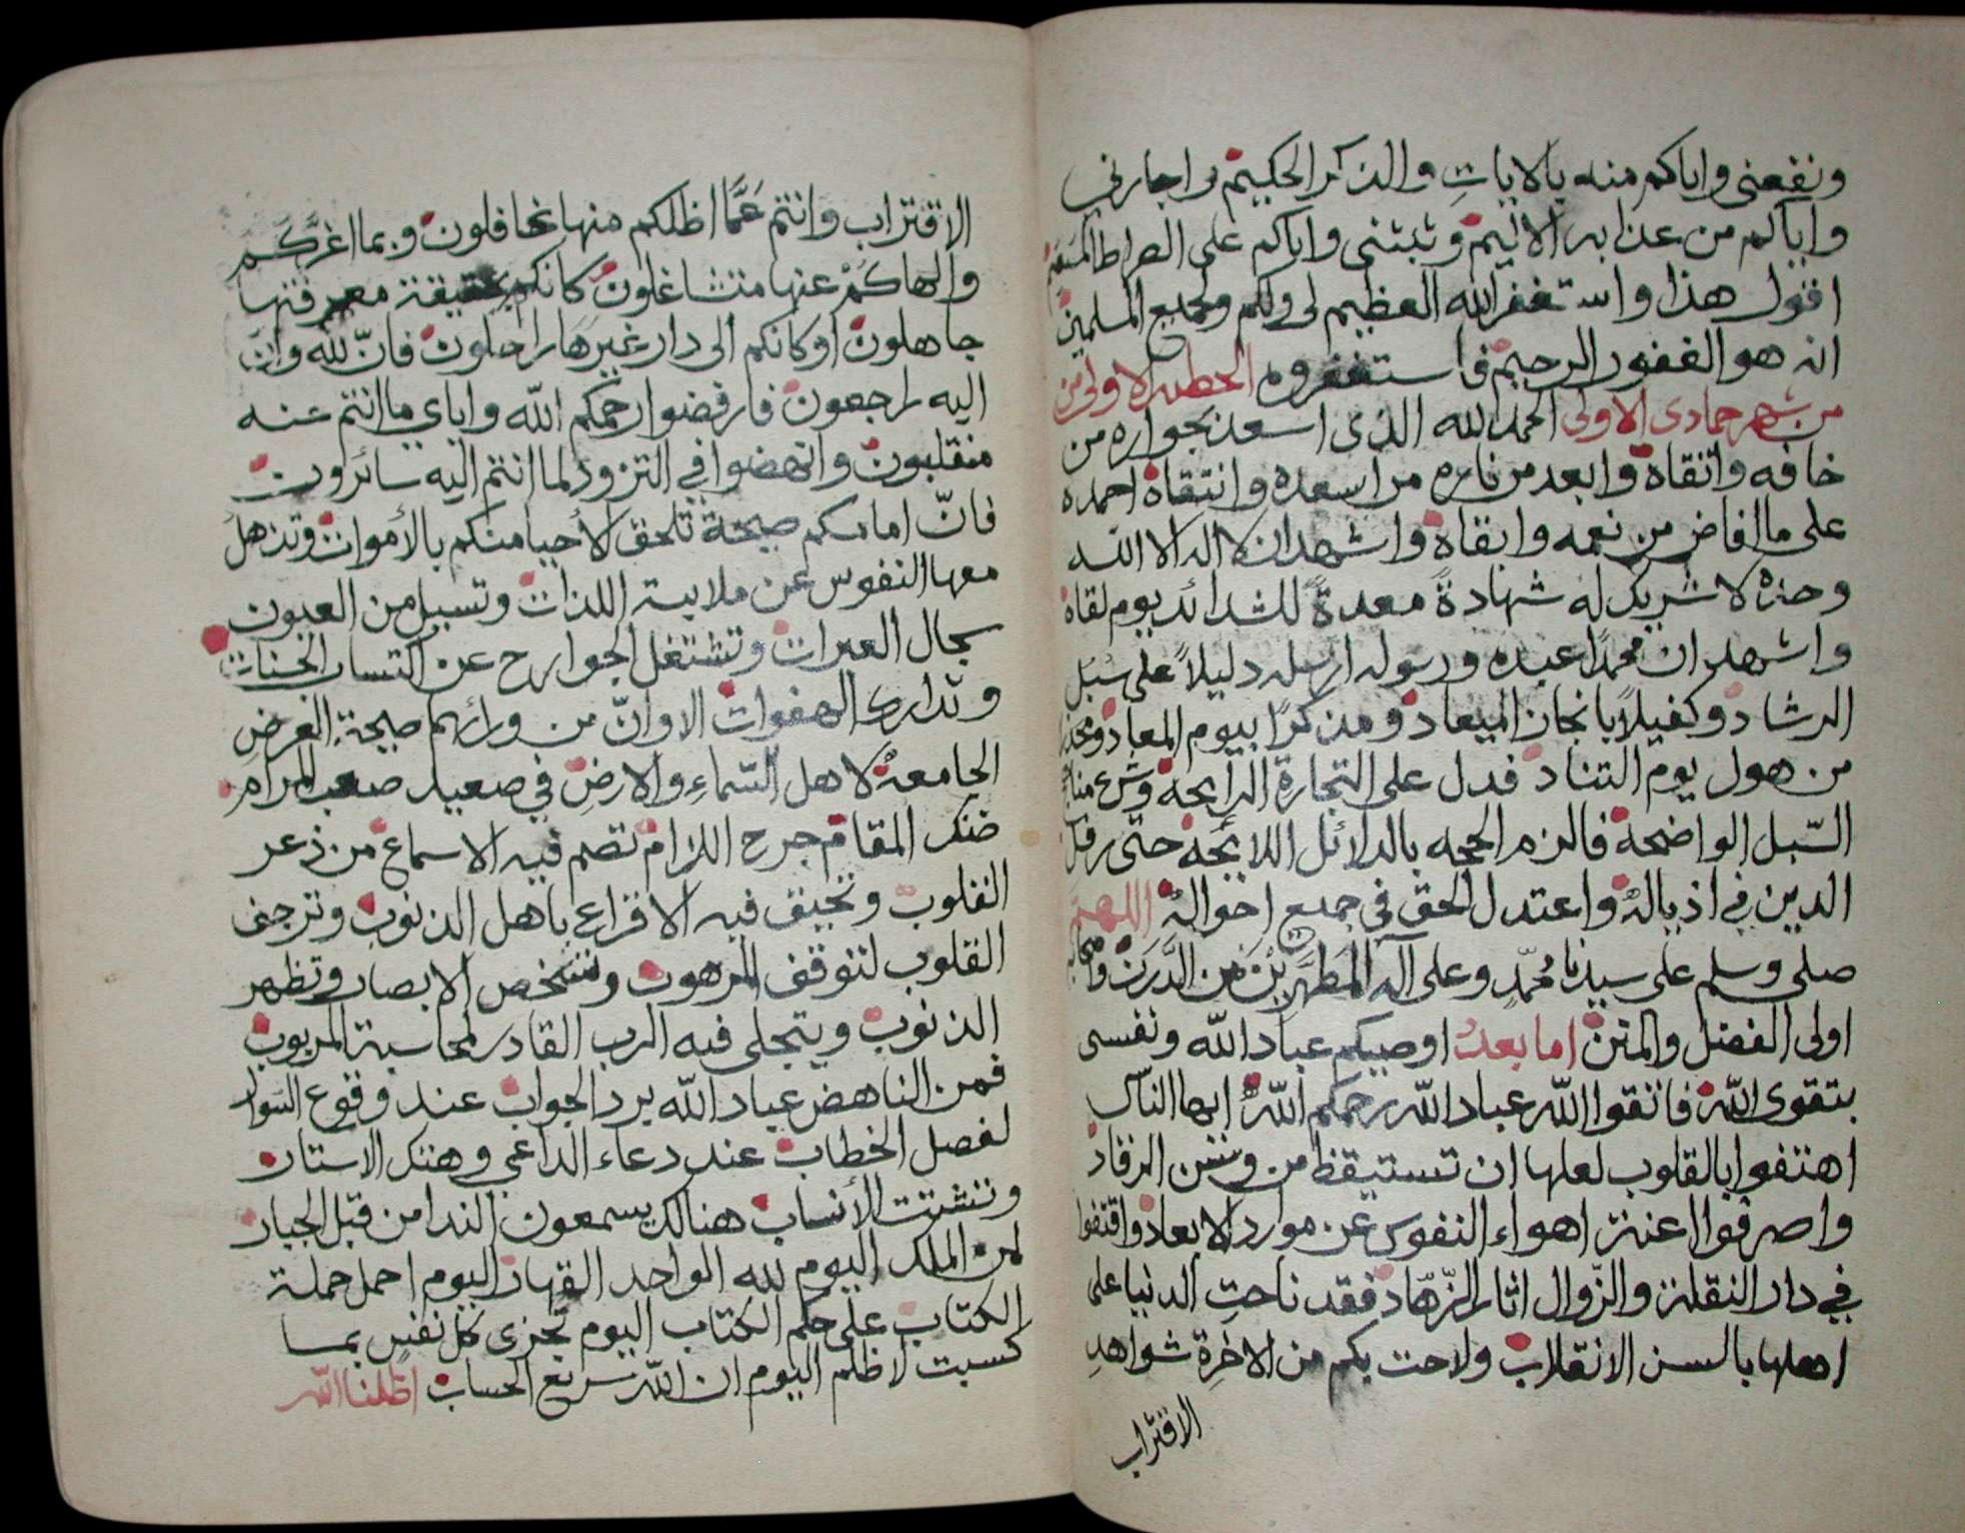 ونفعنى واياكم منه بالايات والذكر الحكيم واجارنى
واياكم من عذابه الاليم وثبتنى واياكم على الصراط المستقيم
اقول هذا واستغفر الله العظيم لى ولكم ولجميع المسلمين
انه هو الغفور الرحيم فاستغفروه الخطبه الاولى من
من شهر جمادى الاولى الحمد لله الذى اسعد بجواره من
خافه واتقاه وابعد من ناره من اسعده وانتقاه احمده
على ما افاض من نعمه وابقاه واشهد ان لا اله الا الله
وحده لا شريك له شهادةً معدةً للشدائد يوم لقاه
واشهد ان محمدًا عبده ورسوله ارسله دليلاً على سُبُل
الرشاد وكفيلاً بانجاز الميعاد ومذكرًا بيوم المعاد ومحذرا
من هول يوم التناد فدل على التجارة الرابحه وشرع مناهج
السّبل الواضحة فالزم الحجه بالدلائل اللايحه حتى رفل
الدين في اذياله واعتدل الحق في جميع احواله اللهم
صلى وسلم على سيدنا محمّدٍ وعلى آله المطهَّرِيْنَ من الدَّرَن وصحابه
اولى الفضل والمنن اما بعدُ اوصيكم عباد الله ونفسى
بتقوى الله فاتقوا الله عباد الله رحمكم اللهُ ايها الناس
اهتفوا بالقلوب لعلها ان تستيقظ من وسن الرقاد
واصرفوا اعنة اهواء النفوس عن موارد الابعاد واقتفوا
في دار النقلة والزّوال اثار الزّهّاد فقد ناحتِ الدنيا على
اهلها بالسن الانقلاب ولاحت بكم من الاخرة شواهدِ
الاقتراب
الاقتراب وانتم عَمَّا اظلكم منها غافلون وبما اغرَّكُم
والهاكُمْ عنها متشاغلون كانكم بحقيقة معرفتها
جاهلون او كانكم الى دار غيرها راحلون فانّ لله وانّ
اليه راجعون فارفضوا رحمكم الله واياي ما انتم عنه
منقلبون وانهضوا في التزود لما انتم اليه سائرون
فانّ امامكم صيحة تلحق الأحيا منكم بالأموات وتذهل
معها النفوس عن ملابسة اللذات وتسيل من العيون
سجال العبرات وتشتغل الجوارح عن اكتساب الحسنات
وتدارك الهفوات الا وانّ من ورائهم صيحة العرضِ
الجامعة لاهل السّماءِ والارض في صعيد صعب المرام
ضنك المقام حرج اللزام تصم فيه الاسماع من ذعر
القلوب وتحيق فيه الاقراع باهل الذنوب وترجف
القلوب لتوقف المرهوب وتشخص الابصار وتظهر
الذنوب ويتجلى فيه الرب القادر لمحاسبة المربوب
فمن الناهض عباد الله برد الجواب عند وقوع السوال
لفصل الخطاب عند دعاء الداعي وهتك الاستار
وتشتت الأنساب هنالك يسمعون الندا من قبل الجبار
لمن الملك اليوم لله الواحد القهار اليوم احمل حملة
الكتاب على حكم الكتاب اليوم تجزى كل نفسٍ بما
كسبت لا ظلم اليوم ان الله سريع الحساب اظلنا الله